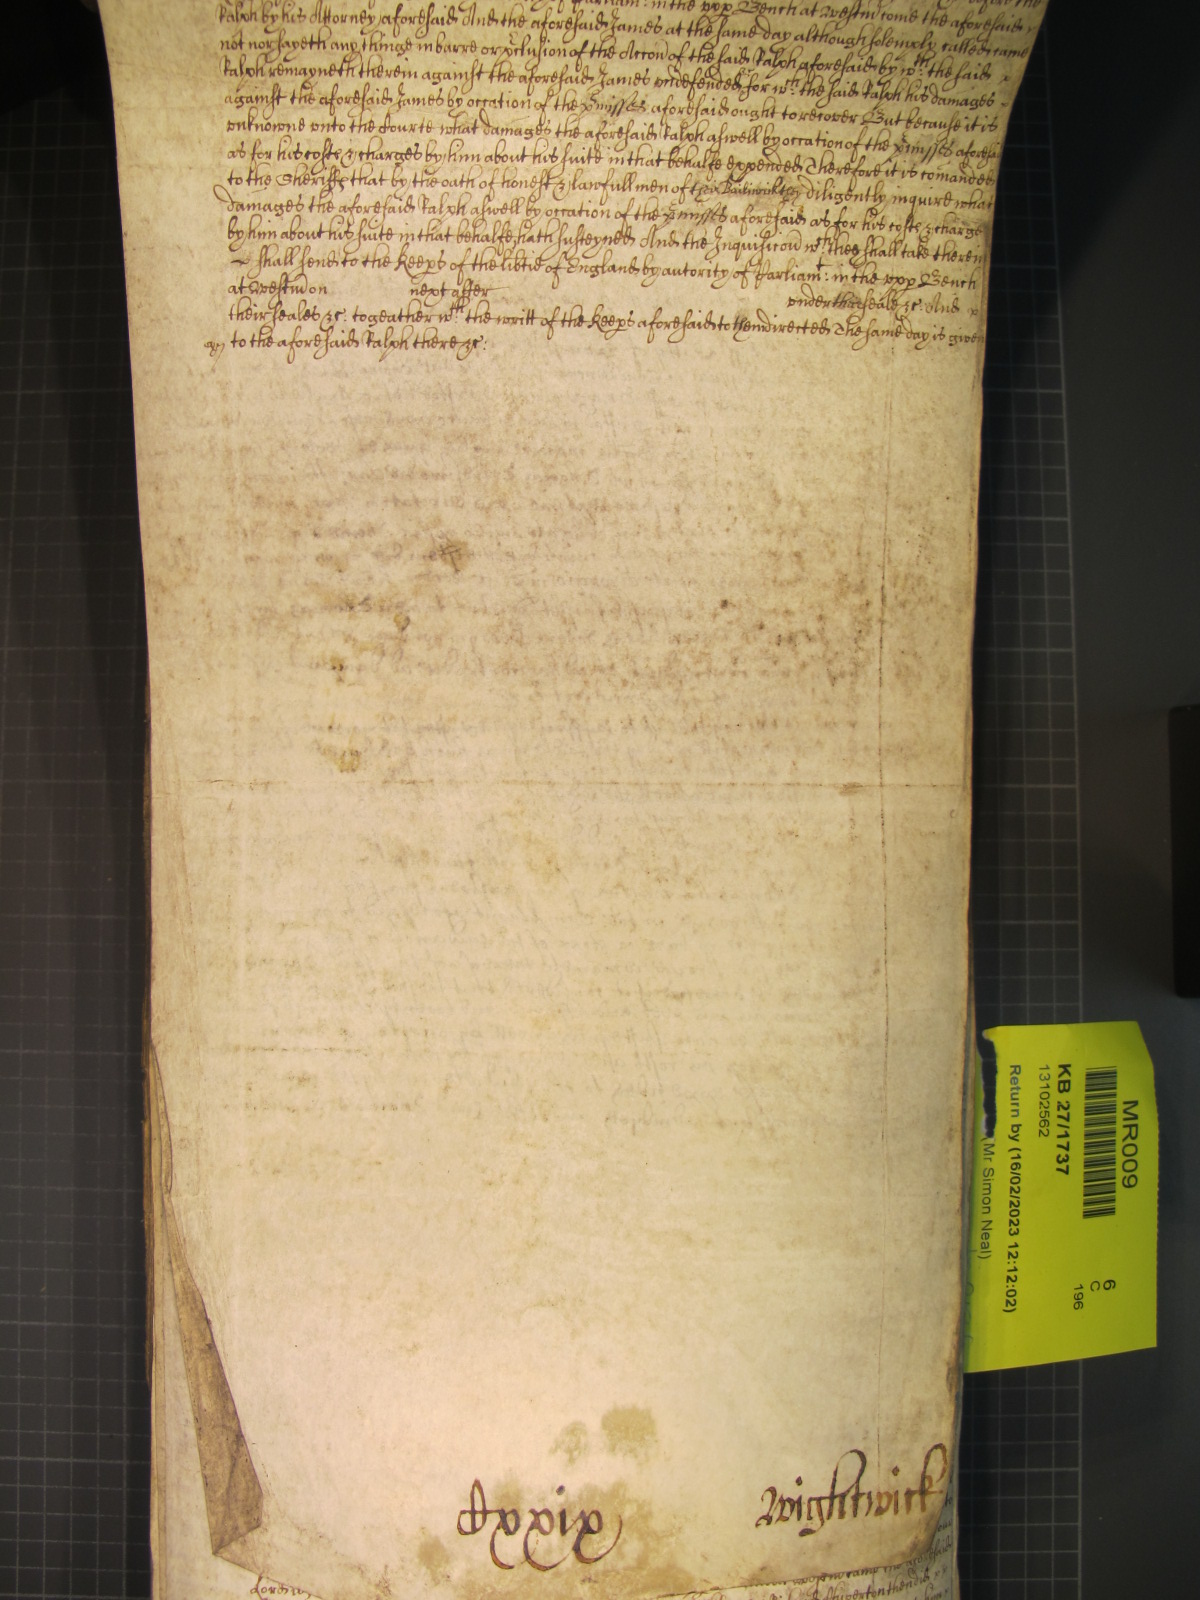 Parliam: in the upp Bench at Westm come the aforesaid
Ralph by his Attorney aforesaid And the aforesaid James at the same day although solemply called came
not nor sayeth any thinge in barre or pclusion of the Accon of the said Ralph aforesaid by wch the said
Ralph remayneth therein against the aforesaid James undefended for wch the said Ralph his damages
against the aforesaid James by occation of the pmisses aforesaid ought to recover But because it is
unknowne unto the Courte what damages the aforesaid Ralph aswell by occation of the pmisses aforesaid
as for his coste & charges by him about his suite in that behalfe expended Therefore it is comanded
to the Sheriffe that by the oath of honest & lawfull men of Bailiwicke diligently inquire what
damages the aforesaid Ralph aswell by occation of the pmisses aforesaid as for his coste & charge
by him about his suite in that behalfe hath susteyned And the Inquisicion wch they shall take therein
shall send to the Keeps of the libtie of England by autority of Parliamt: in the upp Bench
at Westm on next after under seale &c. And
their seales &c. togeather wth the writt of the Keeps aforesaid to them directed The same day is given
to the aforesaid Ralph there &c.
Cxxix
Wightwick
MR009
6
C
196
KB 27/1737
13102562
Return by (16/02/2023 12:12:02)
(Mr Simon Neal)